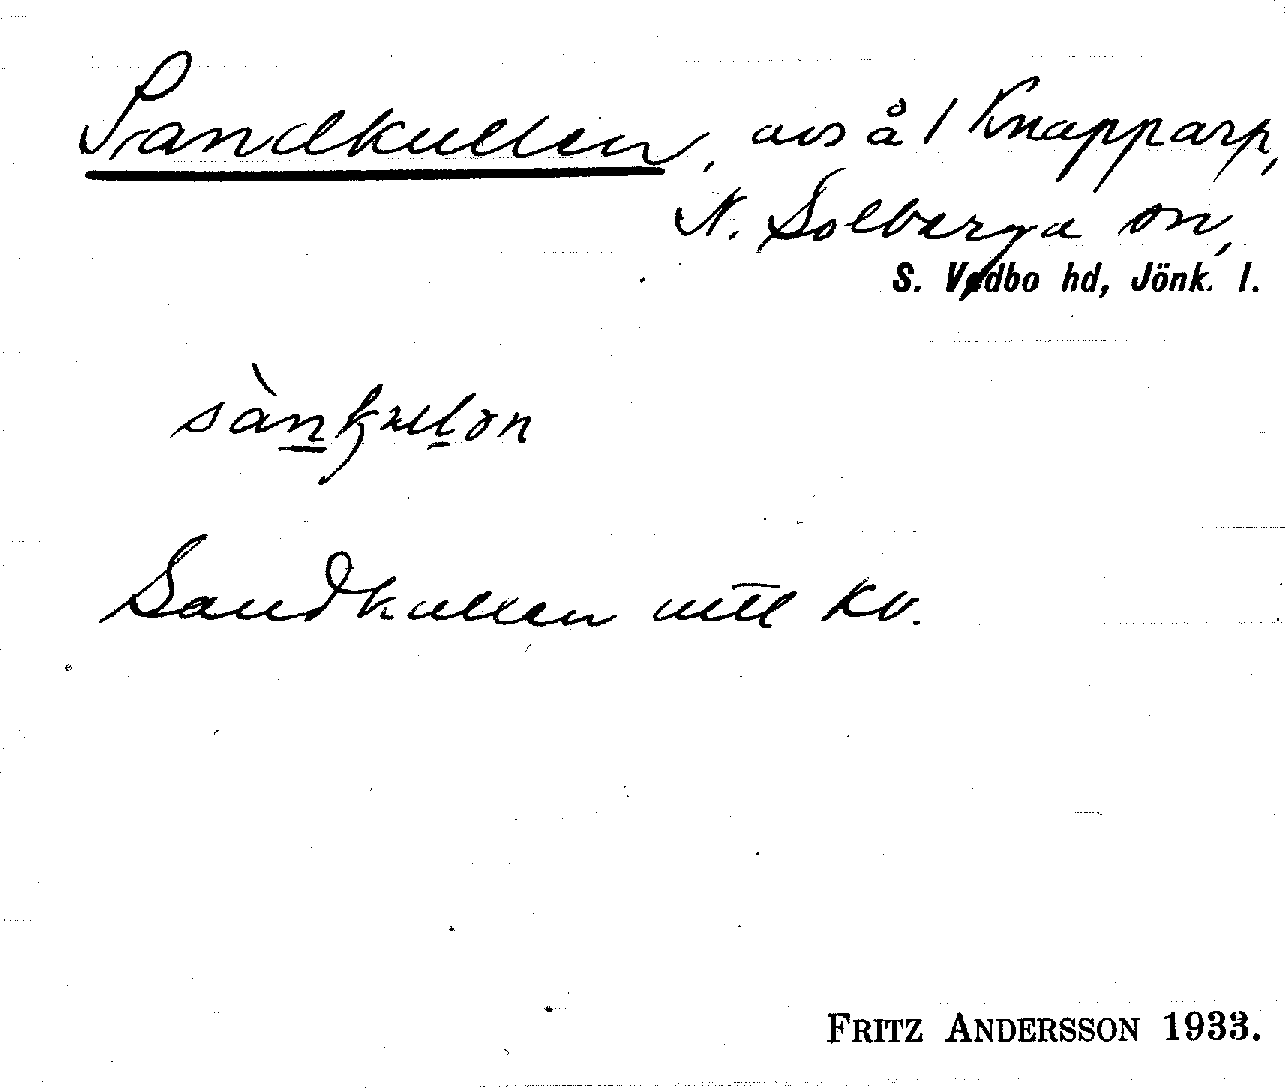 Sandkullen, avs å 1 Knapparp,
N. Solberga sn,
S. Vedbo hd, Jönk. l.
sànkulən
Sandkullen mtl kv.
FRITZ ANDERSSON 1933.